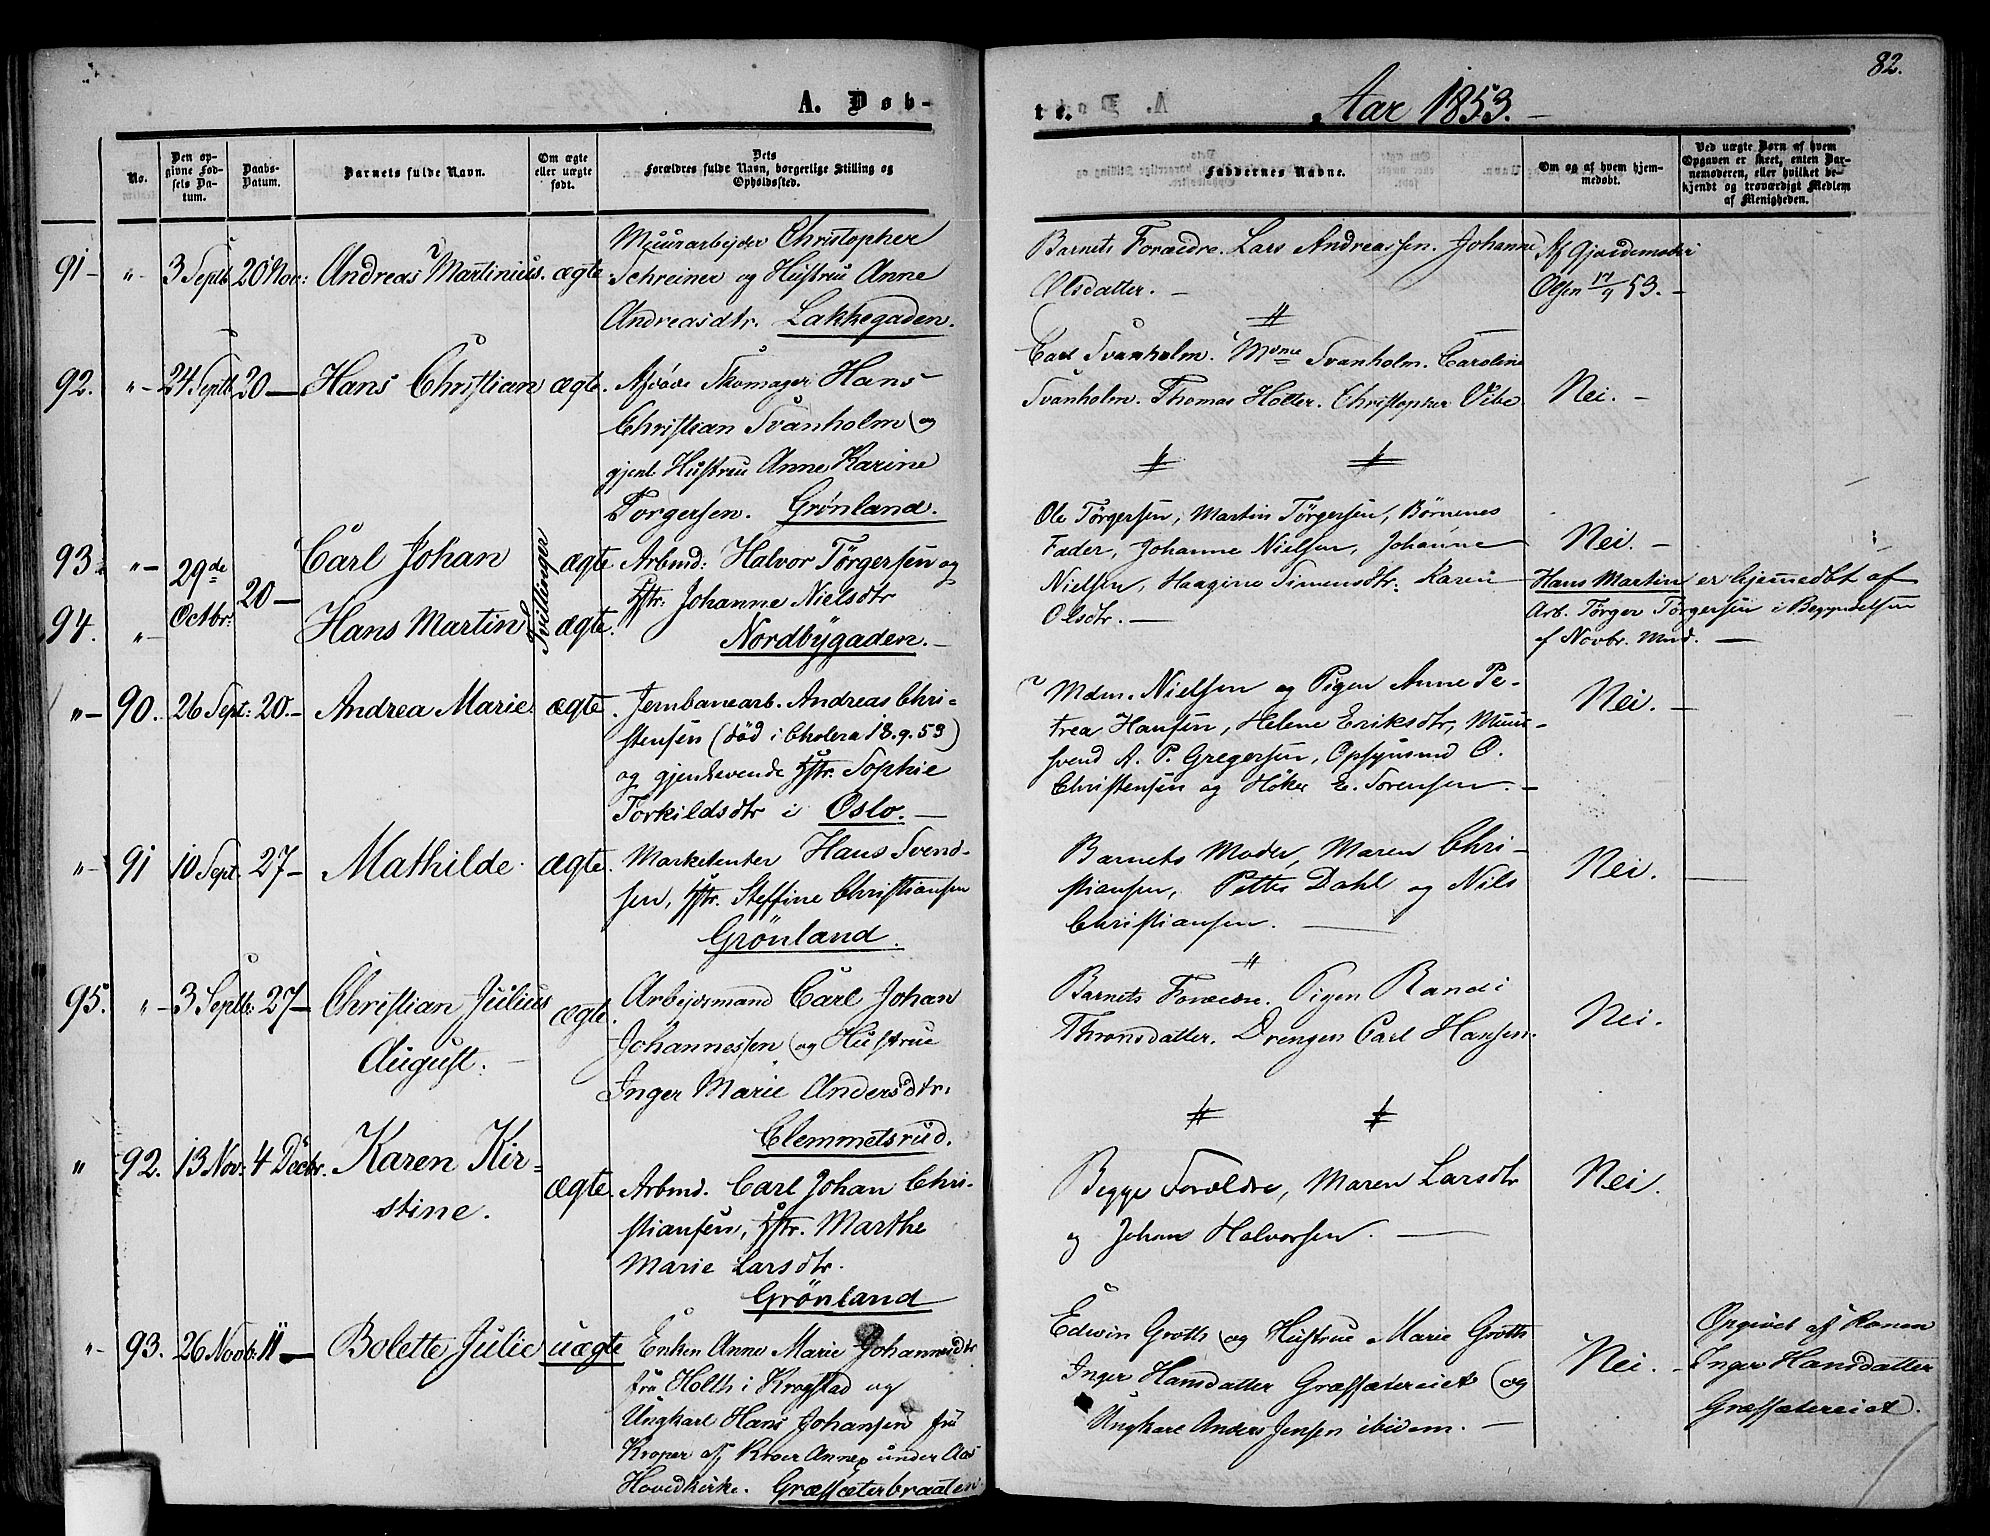 82.
A. Døb-
te.
Aar 1853.
No.
Den op-
givne Fød-
sels Da-
tum.
Daabs-
Datum.
Barnets fulde Navn.
Om ægte
eller uægte
født.
Dets
Forældres fulde Navn, borgerlige Stilling og
Opholdssted.
Faddernes Navne.
Om og af hvem hjem-
medøbt.
Ved uægte Børn af hvem
Opgaven er skeet, enten Bar-
nemoderen, eller hvilket be-
kjendt og troværdigt Medlem
af Menigheden.
91- "- 3 Septb 20 Nov: Andreas Martinius. ægte.
Muurarbejder Christopher
Schreiner og Hustrue Anne
Andreasdtr. Lakkegaden.
Barnets Forældre. Lars Andreassen. Johanne
Olsdatter. -
Af Gjordemoder
Olsen 17/9 53. -
92. "- 24 Septb 20 - Hans Christian ægte.
Afdøde Skomager Hans
Christian Svanholm og
gjenl. Hustrue Anne Karine
Torgersen. Grønland.
Carl Svanholm. Mdme Svanholm. Caroline
Svanholm. Thomas Holter. Christopher Vibe
Nei. -
93. "- 29de Octbr: 20 - Carl Johan ægte
94. " - Hans Martin ægte.
Tvillinger
Arbmd: Halvor Törgersen og
Hstr: Johanne Nielsdtr
Nordbygaden. -
Ole Törgersen, Martin Törgersen, Børnenes
Fader, Johanne Nielsen, Johanne
Nielsen, Haagine Simensdtr: Karen
Olsdtr. -
Nei. -
Hans Martin er hjemedøbt af
Arb. Törger Törgersen i Begyndelsen
af Novbr. Mnd. -
"- 90. 26 Sept: 20. - Andrea Marie. ægte.
Jernbanearb. Andreas Chri-
stensen (død i Cholera 18.9.53)
og gjenlevende Hstr. Sophie
Torkildsdtr i Oslo. -
Mdm. Nielsen og Pigen Anne Pe-
trea Hansen, Helene Eriksdtr, Muur-
svend A. P. Gregersen, Opsynsmd O.
Christensen og Höker E. Sorensen. -
Nei. -
"- 91 10 Sept. 27- Mathilde. ægte.
Marketenter Hans Svend-
sen, Hstr. Steffine Christiansen
Grönland.
Barnets Moder, Maren Chri-
stiansen, Petter Dahl og Nils
Christiansen.
Nei.
95. "- 3 Septb: 27- Christian Julius ægte.
August. -
Arbejdsmand Carl Johan
Johannessen og Hustrue
Inger Marie Andersdtr:
Clemmetsrud.
Barnets Forældre. Pigen Randi
Thronsdatter. Drengen Carl Hansen.
Nei.
" 92. 13 Nov: 4 Decbr. Karen Kir- ægte.
stine.
Arbmd. Carl Johan Chri-
stiansen, Hstr. Marthe
Marie Larsdtr.
Grönland
Begge Forældre, Maren Larsdtr
og Johan Halvorsen.
Nei.
"- 93. 26 Novb: 11 - Bolette Julie uægte
Enken Anne Marie Johannesdtr
fra Holth i Krogstad og
Ungkarl Hans Johansen fra
Kroper af Kroer Annex under Aas
Hovedkirke. Græssæterbraaten.
Edwin Groth og Hustrue Marie Groth
Inger Hansdatter Græssætereiet og
Ungkarl Anders Jensen ibidem. -
Nei. -
Opgivet af Konen
Inger Hansdatter
Græssætereiet.